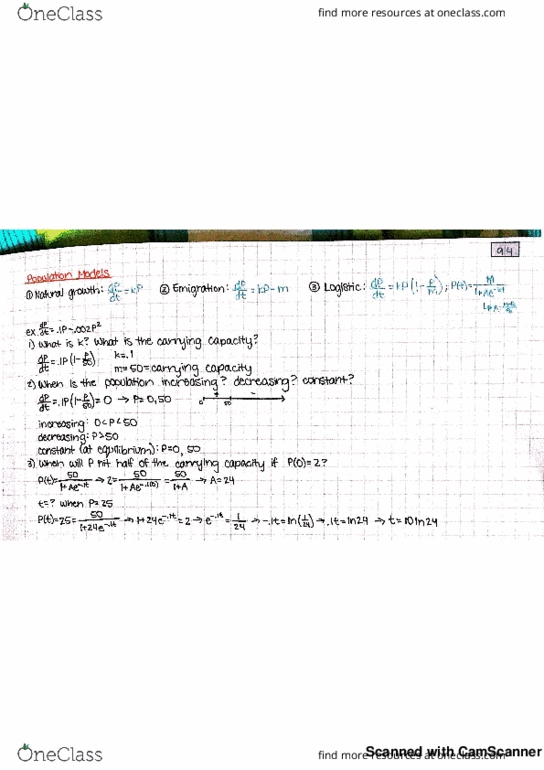 OneClass
find more resources at oneclass.com
9.4
Population Models
① Natural growth: dP/dt = kP ② Emigration: dP/dt = kP - m ③ Logistic: dP/dt = kP(1 - P/M); P(t) = M/(1+Ae^-kt)
ex. dP/dt = .1P - .002P²
1) What is k? What is the carrying capacity?
dP/dt = .1P(1 - P/50) k = .1
m = 50 = carrying capacity
2) When is the population increasing? decreasing? constant?
dP/dt = .1P(1 - P/50) = 0 → P = 0, 50 0 + 50 -
increasing: 0 < P < 50
decreasing: P > 50
constant (at equilibrium): P = 0, 50
3) When will P hit half of the carrying capacity if P(0) = 2?
P(t) = 50/(1+Ae^-.1t) → 2 = 50/(1+Ae^-.1(0)) = 50/(1+A) → A = 24
t = ? when P = 25
P(t) = 25 = 50/(1+24e^-.1t) → 1+24e^-.1t = 2 → e^-.1t = 1/24 → -.1t = ln(1/24) → .1t = ln24 → t = 10 ln 24
OneClass
find more resources at oneclass.com
Scanned with CamScanner